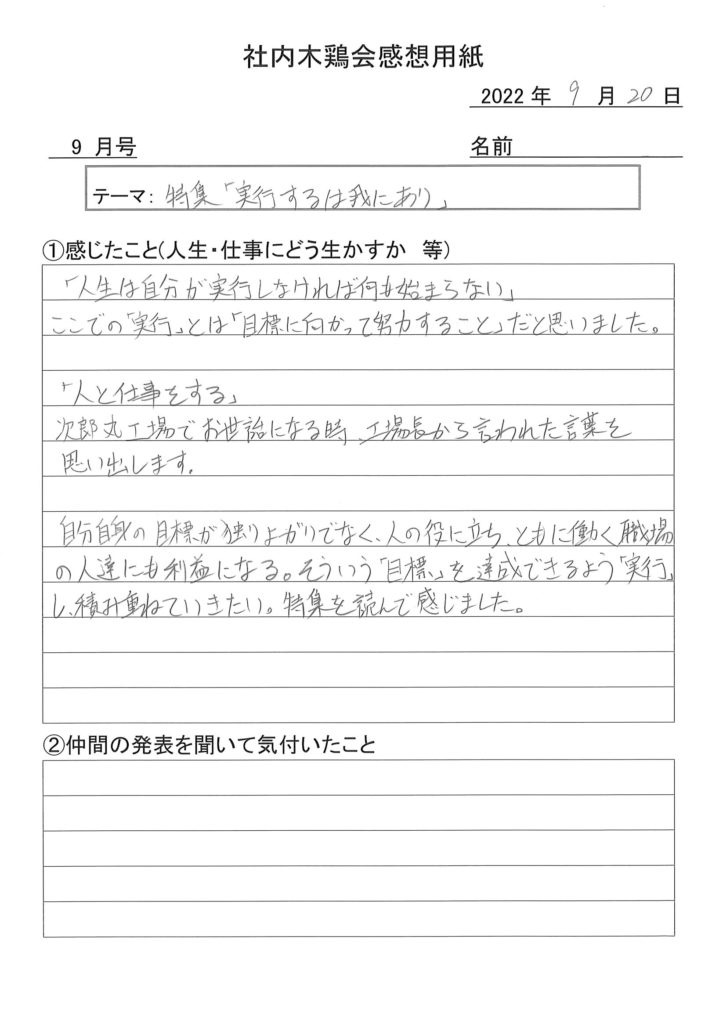 社内木鶏会感想用紙
2022 年 9 月 20 日
9 月号
名前
テーマ: 特集「実行するは我にあり」
①感じたこと(人生・仕事にどう生かすか 等)
「人生は自分が実行しなければ何も始まらない」
ここでの「実行」とは「目標に向かって努力すること」だと思いました。
「人と仕事をする」
次郎丸工場でお世話になる時、工場長から言われた言葉を
思い出します。
自分自身の目標が独りよがりでなく、人の役に立ち、ともに働く職場
の人達にも利益になる。そういう「目標」を達成できるよう「実行」
し、積み重ねていきたい。特集を読んで感じました。
②仲間の発表を聞いて気付いたこと